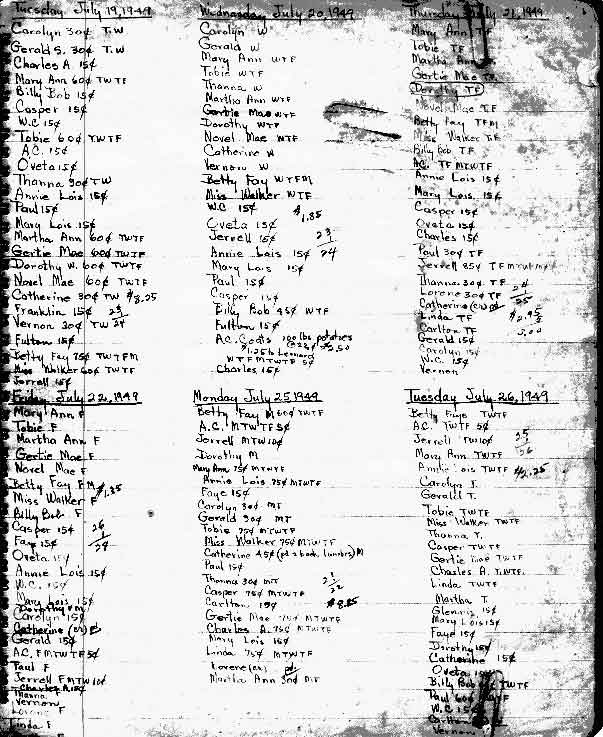 Tuesday July 19, 1949
Carolyn 30¢ T.W
Gerald S. 30¢ T.W
Charles A. 15¢
Mary Ann 60¢ TWTF
Billy Bob 15¢
Casper 15¢
W.C 15¢
Tobie 60¢ TWTF
A.C. 15¢
Oveta 15¢
Thanna 30¢ TW
Annie Lois 15¢
Paul 15¢
Mary Lois 15¢
Martha Ann 60¢ TWTF
Gertie Mae 60¢ TWTF
Dorothy W. 60¢ TWTF
Novel Mae 60¢ TWTF
Catherine 30¢ TW $8.25
Franklin 15¢
Vernon 30¢ TW 24
Fulton 15¢
Betty Fay 75¢ TWTFM
Miss Walker 60¢ TWTF
Jerrell 15¢
Wednesday July 20, 1949
Carolyn W
Gerald W
Mary Ann WTF
Tobie WTF
Thanna W
Martha Ann WTF
Gertie Mae WTF
Dorothy WTF
Novel Mae WTF
Catherine W
Vernon W
Betty Fay WTFM
Miss Walker WTF
W.C. 15¢ $1.85
Oveta 15¢
Jerrell 15¢ 23
Annie Lois 15¢ 24
Mary Lois 15¢
Paul 15¢
Casper 15¢
Billy Bob 45¢ WTF
Fulton 15¢
A.C. Coats 100 lbs potatoes
WTFMTWTF 5¢
Charles 15¢
Thursday July 21, 1949
Mary Ann TF
Tobie TF
Martha Ann
Gertie Mae TF
Dorothy TF
Novel Mae TF
Betty Fay TFM
Miss Walker TF
Billy Bob TF
A.C. TF MTWTF
Annie Lois 15¢
Mary Lois 15¢
Casper 15¢
Oveta 15¢
Charles 15¢
Paul 30¢ TF
Jerrell 85¢
Thanna 30¢ TF
Lorene 30¢ TF
Catherine
Linda TF $2.95
Carlton TF
Gerald 15¢
Carolyn 15¢
W.C. 15¢
Vernon
Friday July 22, 1949
Mary Ann F
Tobie F
Martha Ann F
Gertie Mae F
Novel Mae F
Betty Fay FM
Miss Walker F $1.35
Billy Bob F
Casper 15¢ 26
Faye 15¢
Oveta 15¢
Annie Lois 15¢
W.C. 15¢
Mary Lois 15¢
Dorothy FM
Carolyn 15¢
Catherine
Gerald 15¢
A.C. FMTWTF 5¢
Paul F
Jerrell F MTW 10¢
Charles A. 15¢
Thanna
Vernon
Lorene F
Linda F
Monday July 25 1949
Betty Fay M 60¢ TWTF
A.C. MTWTF 5¢
Jerrell MTW 10¢
Dorothy M
Mary Ann 75¢ MTWTF
Annie Lois 75¢ MTWTF
Faye 15¢
Carolyn 30¢ MT
Gerald 30¢ MT
Tobie 75¢ MTWTF
Miss Walker 75¢ MTWTF
Catherine 45¢ (pd 2 back lunches) M
Paul 15¢
Thanna 30¢ MT
Casper 75¢ MTWTF
Carlton 15¢ $8.85
Gertie Mae 75¢ MTWTF
Charles A. 75¢ MTWTF
Mary Lois 15¢
Linda 75¢ MTWTF
Lorene
Martha Ann 30¢ MT
Tuesday July 26, 1949
Betty Faye TWTF
A.C. TWTF 5¢
Jerrell TW 10¢ 25
Mary Ann TWTF
Annie Lois TWTF $2.25
Carolyn T.
Gerald T.
Tobie TWTF
Miss Walker TWTF
Thanna T.
Casper TWTF
Gertie Mae TWTF
Charles A. TWTF
Linda TWTF
Martha T.
Glennis 15¢
Mary Lois 15¢
Faye 15¢
Dorothy 15¢
Catherine 15¢
Oveta 15¢
Billy Bob TWTF
Paul 60¢ TWTF
W.C 15¢
Carlton
Vernon